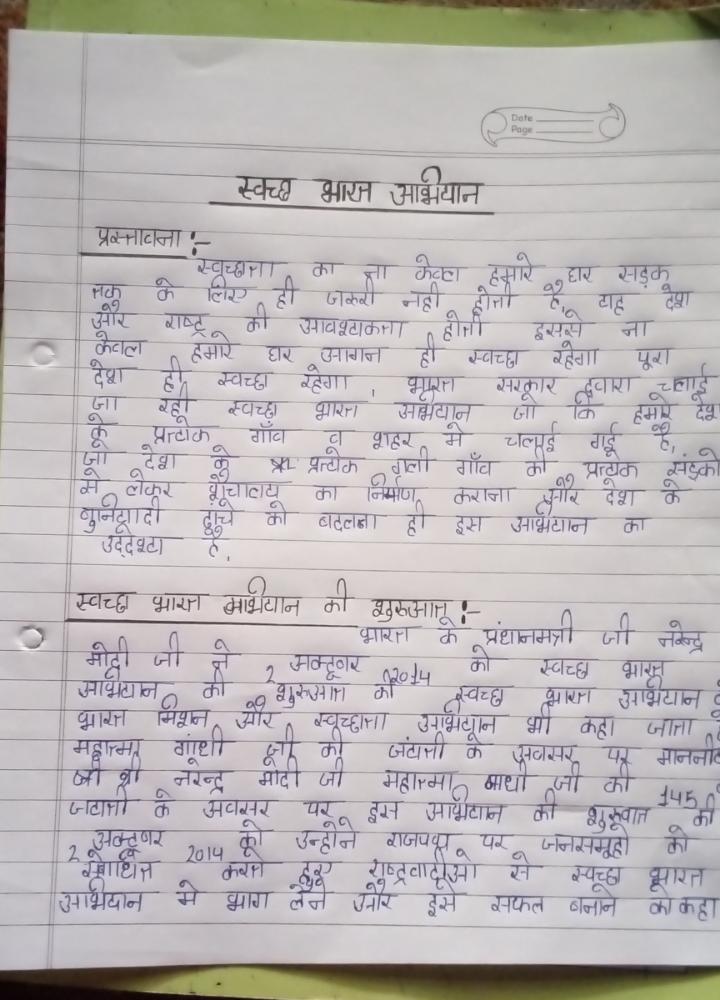 Date
Page
स्वच्छ भारत अभियान
प्रस्तावना :-
स्वच्छता का ना केवल हमारे घर सड़क
तक के लिए ही जरूरी नहीं होती है, यह देश
और राष्ट्र की आवश्यकता होती इससे ना
केवल हमारे घर आगन ही स्वच्छ रहेगा पूरा
देश ही स्वच्छ रहेगा, भारत सरकार द्वारा चलाई
जा रही स्वच्छ भारत अभियान जो कि हमारे देश
के प्रत्येक गाँव व शहर मे चलाई गई है,
जो देश के प्रत्येक गली गाँव की प्रत्येक सड़को
से लेकर शूंचालय का निर्माण कराना और देश के
बुनियादी ढांचे को बदलना ही इस अभियान का
उद्देश्य है,
स्वच्छ भारत अभियान की शुरुआत :-
भारत के प्रधानमंत्री जी नरेन्द्र
मोदी जी ने 2 अक्टूबर 2014 को स्वच्छ भारत
अभियान की शुरुआत की स्वच्छ भारत अभियान
भारत मिशन और स्वच्छता अभियान भी कहा जाता
महात्मा गांधी जी की जंयती के अवसर पर माननीय
श्री नरेन्द्र मोदी जी महात्मा गांधी जी की 145
जयती के अवसर पर इस अभियान की शुरुवात की
2 अक्टूबर 2014 को उन्होने राजपथ पर जनसमूहो को
संबोधित करते हुए राष्ट्रवादीओ से स्वच्छ भारत
अभियान मे भाग लेने और इसे सफल बनाने को कहा